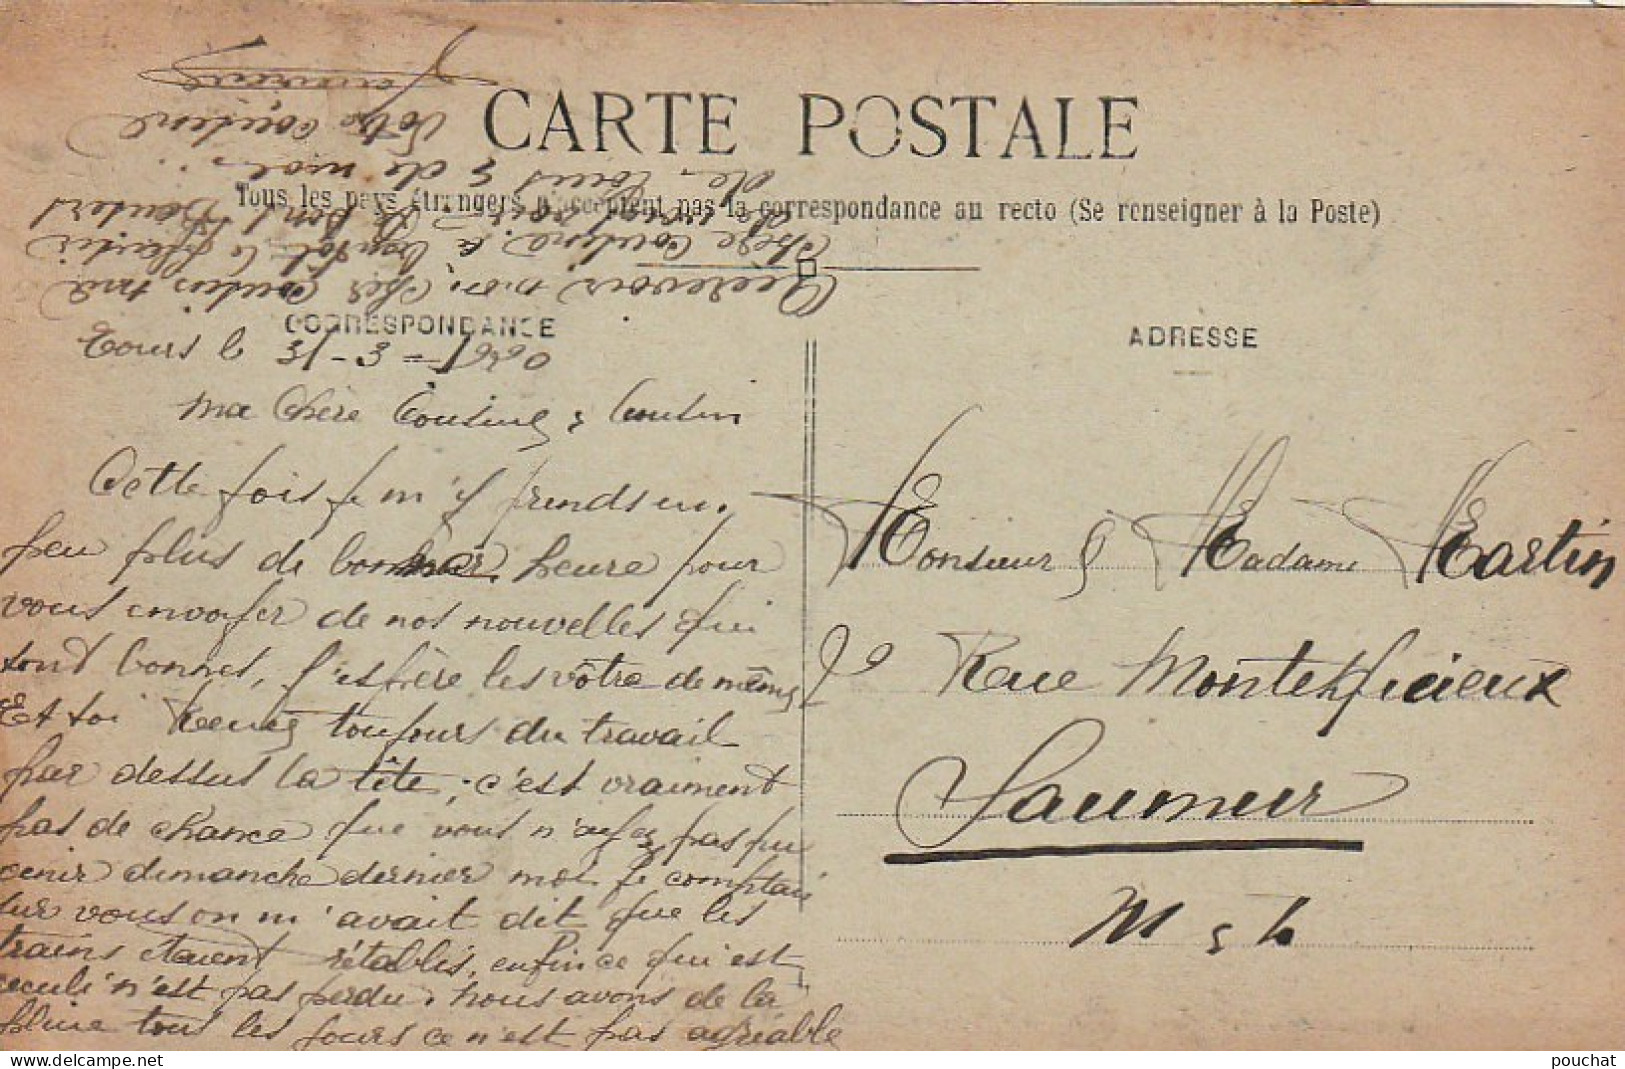 CARTE POSTALE
Tous les pays étrangers n'acceptent pas la correspondance au recto (Se renseigner à la Poste)
CORRESPONDANCE
ADRESSE
Tours le 31-3-1920
Ma Chère Cousine & Cousin
Cette fois je m'y prends un
peu plus de bonner heure pour
vous envoyer de nos nouvelles qui
sont bonnes, j'espère les vôtre de même
Et toi René toujours du travail
par dessus la tête, c'est vraiment
pas de chance que vous n'ayez pas pu
venir dimanche dernier moi je comptai
sur vous on m'avait dit que les
trains étaient rétablis, enfin ce qui est
reculé n'est pas perdu. Nous avons de la
pluie tous les jours ce n'est pas agréable
Recevoir mon cher Cousin ma
Chère Cousine & bientôt le plaisir
de vous voir
de tous & de moi
Votre cousine
Monsieur & Madame Martin
20 Rue Montesquieux
Saumur
M & L
pouchat